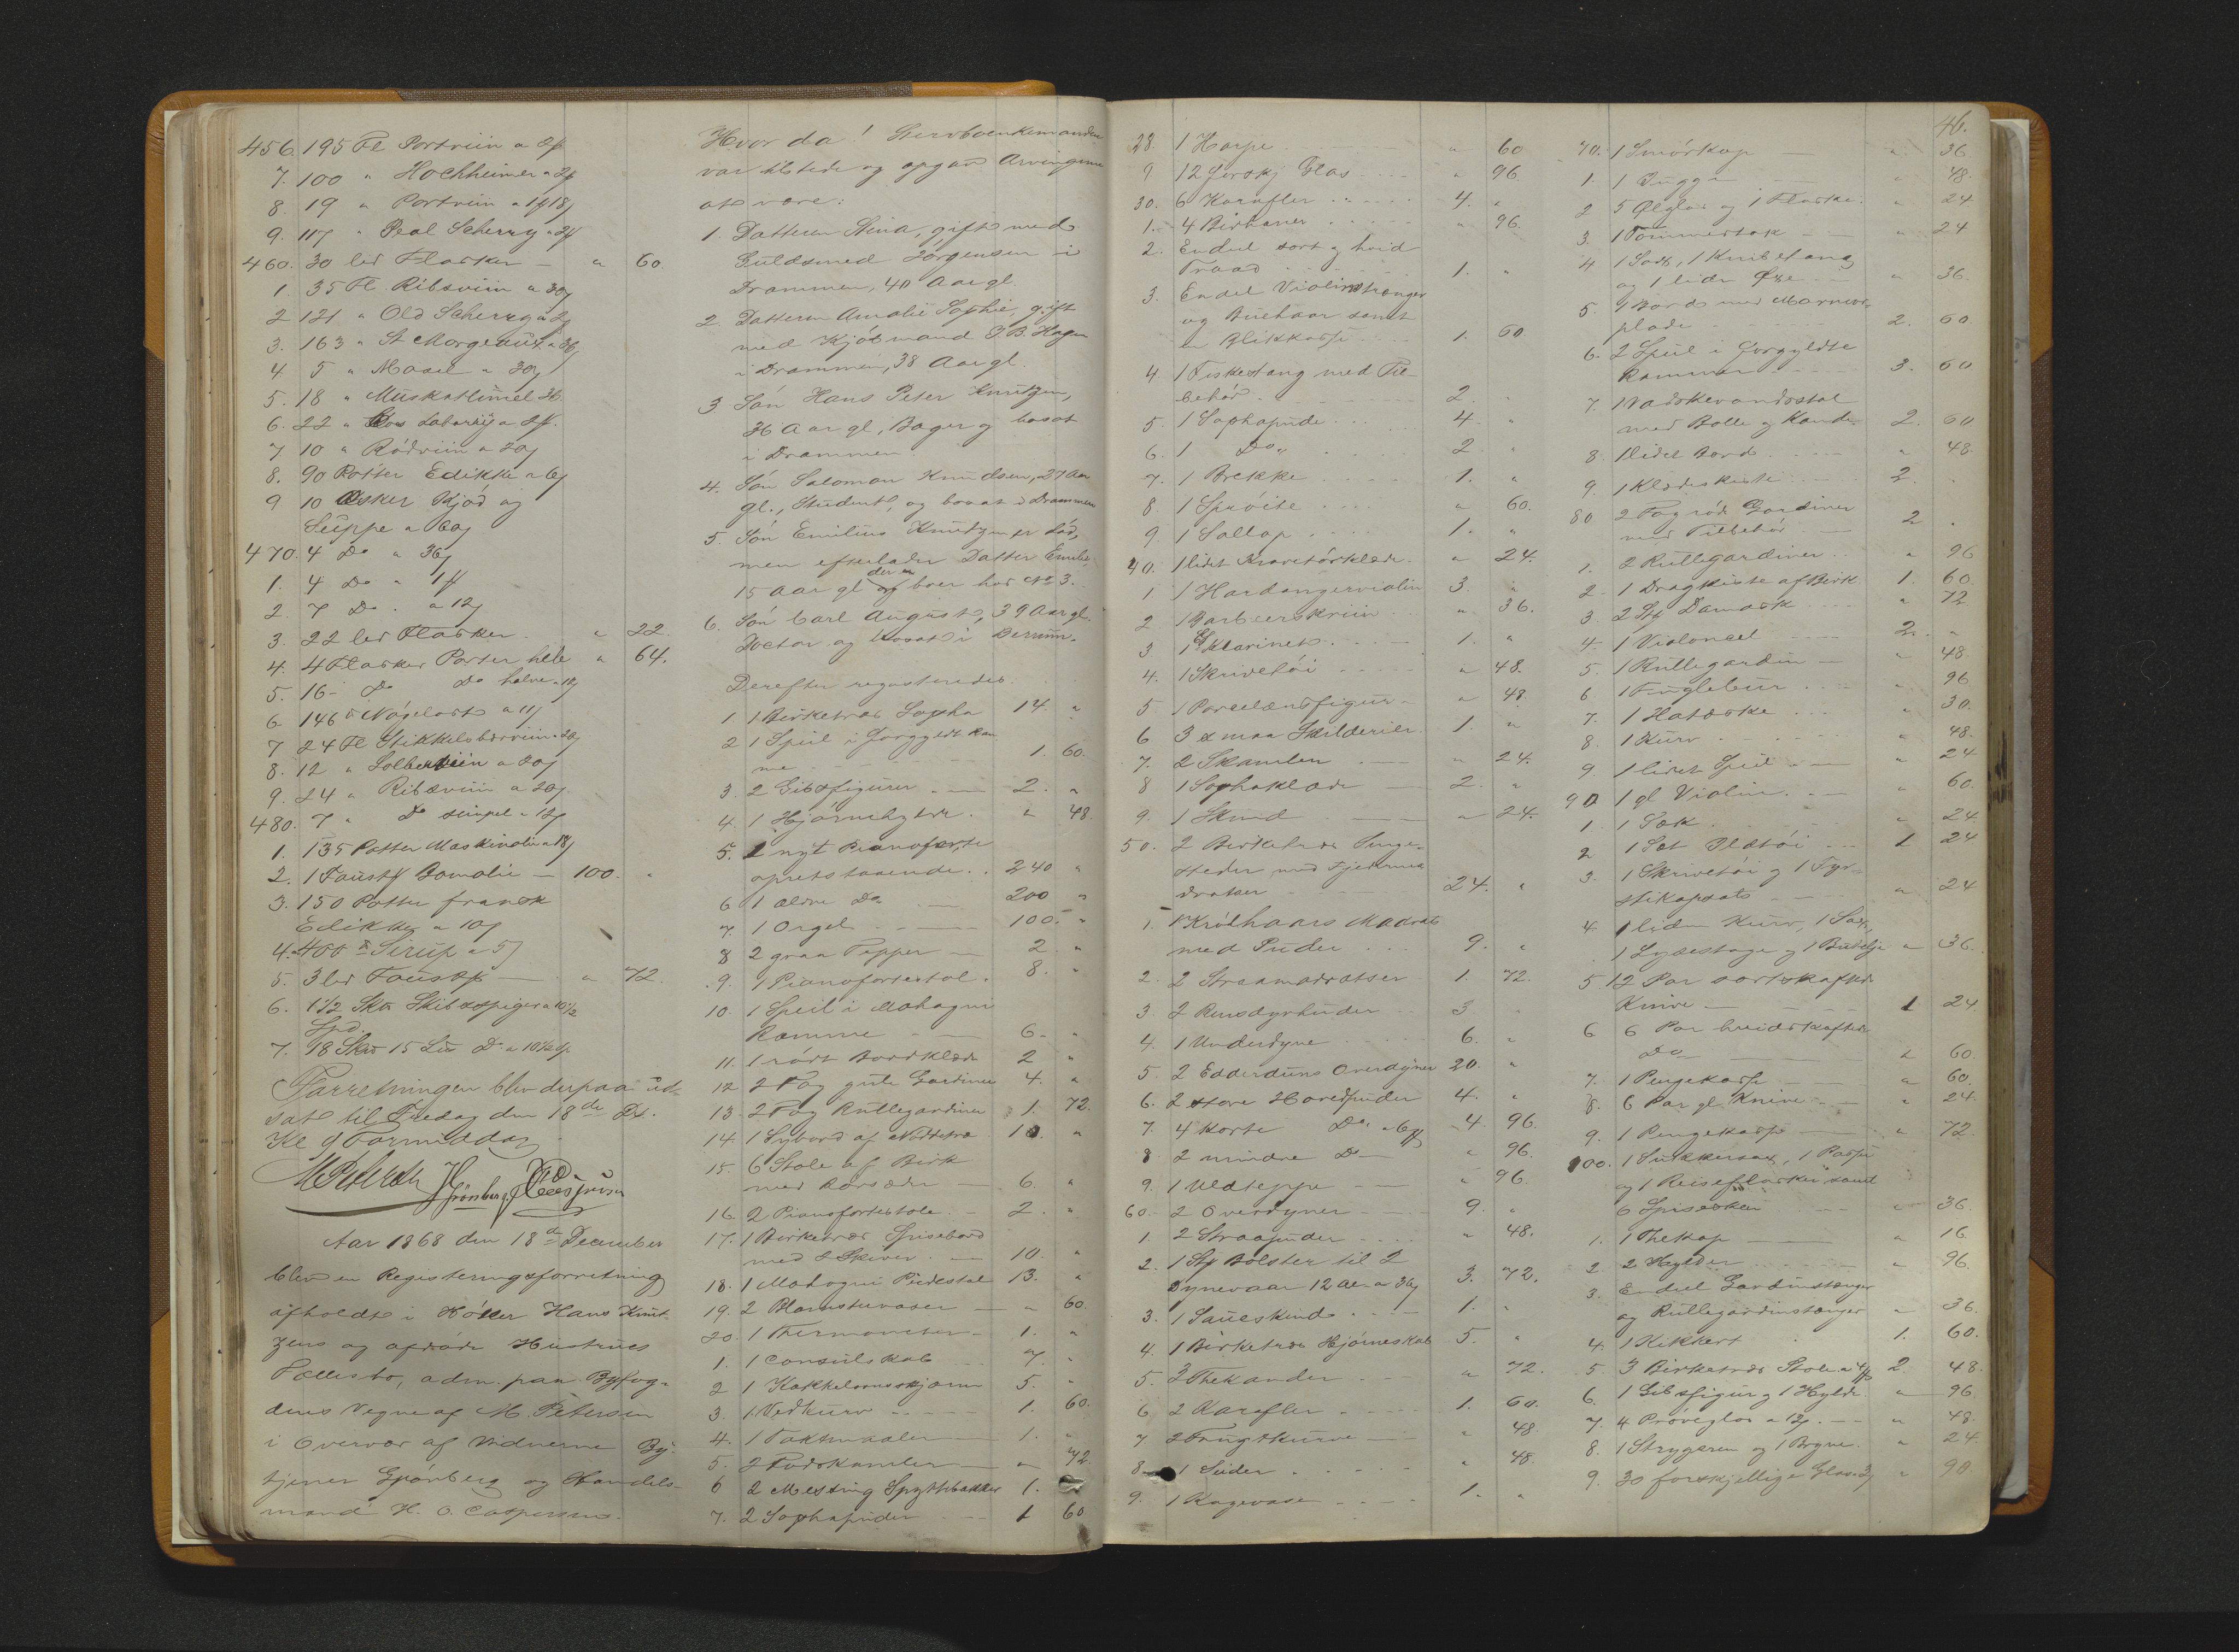 456. 195 Fl Portviin a 2f
7. 100 " Hochheimer a 2f
8. 19 " Portviin a 1f 18f
9. 117 " Peal Scherry a 2f
460. 30 led Flasker — " 60.
1. 35 Fl Ribsviin a 30f
2 121 " Old Scherry a 2f
3. 163 " St Morgeaux a 36f
4 5 " Mosel a 30f
5. 18 " Muskatlunel 36
6. 22 " a 2f.
7 10 " Rødviin a 20f
8. 90 Potter Edikke a 6f
9 10 Æsker Kjød og
Suppe a 60f
470. 4 Do a 36f
1. 4 Do " 1f
2. 7 Do. a 12f
3. 22 led Flasker. " 22.
4. 4 Flasker Porter hele " 64.
5. 16 - Do Do halve a 12f
6 146 ℔ Nøgelost a 11f
7 24 Fl Stikkelsbærviin a 20f
8. 12 " Solbærviin a 20f
9. 24 " Ribsviin a 20f
480. 7 " Do simpel a 12f
1. 135 Potter Maskinolie a 18f
2. 1 Faustf Bomolie — 100. "
3. 150 Potter fransk
Edikke a 10f
4. 400 ℔ Sirup a 5f
5. 3 led Faustf — " 72.
6. 1 1/2 Sk℔ Skibsspiger a 10 1/2
Spd.
7. 18 Sk℔ 15 L℔ Do a 10 1/2 Sp.
Forretningen blev derpaa ud-
sat til Fredag den 18de Ds.
Kl 9 Formiddag
M Petersen Grønberg H O Caspersen
Aar 1868 den 18de December
blev en Registeringsforretning
afholdt i Høker Hans Knut-
zens og afdøde Hustrues
Fællesbo, adm. paa Byfog-
dens Vegne af M. Petersen
i Overvær af Vidnerne By-
tjener Grønberg og Handels-
mand H. O. Caspersen.
Hvor da! Stervboenkemanden
var tilstede og opgav Arvingerne
at være:
1. Datteren Stina, gift med
Guldsmed Jørgensen i
Drammen, 40 Aar gl.
2. Datteren Amalie Sophie, gift
med Kjøbmand P. B. Hagen
i Drammen, 38 Aar gl.
3 Søn Hans Peter Knutzen,
36 Aar gl, Bager og bosat
i Drammen
4. Søn Saloman Knudsen, 27 Aar
gl., Student, og bosat i Drammen
5. Søn Emilius Knutzen er død,
men efterlader Datter Emilie,
15 Aar gl der er og boer hos No 3.
6. Søn Carl August, 39 Aar gl.
Doctor og bosat i Bærum.
Derefter registeredes.
1 1 Birketræs Sopha 14. "
2 1 Speil i forgyldt Ram
me 1. 60.
3. 2 Gibsfigurer — 2. "
4. 1 Hjørnehylde. " 48.
5. 1 nyt Pianoforte
opretstaaende. . 240 "
6 1 ældre Do — 200 "
7. 1 Orgel — 100. "
8 2 graa Tepper — 2. "
9. 1 Pianofortestol. 8. "
10. 1 Speil i Mahagni
Ramme — 6. "
11. 1 rødt Bordklæde 2 "
12 2 Fag gule Gardiner 4. "
13. 2 Fag Rullegardiner 1. 72.
14. 1 Sybord af Nøddetræ 10. "
15. 6 Stole af Birk
med Rørsæder — 6. "
16. 2 Pianofortestole. — 2. "
17. 1 Birketræs Spisebord
med 2 Skiver. — 10. "
18. 1 Mahogni Piedestal 13. "
19. 2 Blomstervaser — " 60.
20. 1 Thermometer — 1. "
1. 1 Consulskab 7. "
2 1 Kakkelovnsskjærm 5. "
3. 1 Vedkurv — 1. 60.
4. 1 Taktmaaler — 1. "
5. 2 Fodskamler — " 72.
6 2 Messing Spyttebakker 1.
7. 2 Sophapuder — 1 60
28. 1 Harpe " 60
9 12 forskj Glas " 96.
30. 6 Karafler 4. "
1. 4 Birhaner " 96.
2. Endeel sort og hvid
Traad 1. "
3. Endel Violinstrænger
og Buehaar samt
en Blikkasse 1. 60
4 1 Fiskestang med Til-
behør 2. "
5. 1 Sophapude 4. "
6. 1 Do " 2. "
7. 1 Brekke 1. "
8 1 Sprøite " 60.
9. 1 Sallop 1. "
40. 1 lidet Kravetørklæde. " 24.
1 1 Hardangerviolin 3. "
2 1 Barbeerskriin " 36.
3 1 Klarinet. 1. "
4. 1 Skrivetøi " 48.
5. 1 Porcelænsfigur — " 48.
6. 3 smaa Skilderier. 1. "
7. 2 Skamler — " 24.
8 1 Sophaklæde — 2. "
9. 1 Skind — " 24.
50. 2 Birketræs Senge-
steder med Fjedermad
dratser 24. "
1. 1 Krølhaars Madrats
med Puder 9. "
2. 2 Straamadratser 1. 72.
3. 2 Rensdyrhuder 3 "
4. 1 Underdyne 6. "
5. 2 Edderduns Overdyner 20. "
6. 2 store Hovedpuder 4. "
7. 4 korte Do. 4 96.
8 2 mindre Do — " 96.
9. 1 Uldteppe — " 96.
60. 2 Overdyner — 9. "
1. 2 Straapuder " 48.
2. 1 Stf Bolster til 2
Dynevaar 12 Al. a 36f 3. 72.
3. 1 Saueskind — 1. "
4. 1 Birketræs Hjørneskab 5. "
5. 3 Thekander " 72.
6 2 Karafler 1. 60.
7 2 Frugtkurve — " 48.
8. 1 " 48.
9. 1 Kagevase 1. "
46.
70. 1 Smørkop — " 36
1. 1 Mugge " 48.
2 5 Ølglas og 1 Flaske. " 24
3. 1 Tømmerstok — " 24
4 1 Sax, 1 Knibetang
og 1 liden Øxe — " 36.
5. 1 Bord med Marmor-
plade 2. 60.
6. 2 Speil i forgyldte
Rammer 3. 60
7. 1 Vaskevandsstol
med Bolle og Kande 2. 60
8. 1 lidet Bord " 48.
9. 1 Klædeskiste 2. "
80 2 Fag røde Gardiner
med Tilbehør — 2 "
1. 2 Rullegardiner " 96
2. 1 Dragkiste af Birk 1. 60.
3. 2 Stf Damask " 72
4. 1 Violoncel 2. "
5. 1 Rullegardin — " 48
6. 1 Fuglebuur 96
7. 1 Hatæske " 30.
8. 1 Kurv " 48.
9. 1 lidet Speil — " 24
90 1 gl Violin. — " 60.
1. 1 Sæk " 24.
2 1 Sæt Pletøi 1 24
3. 1 Skrivetøi og 1 Fyr-
stikapsats — " 24
4. 1 liden Kurv, 1 Sax,
1 Lysestage og 1 " 36.
5. 12 Par sortskaftede
Knive — 1 24
6 6 Par hvidskaftede
Do — " 60.
7. 1 Pengekasse — " 60.
8. 6 Par gl. Knive — " 24.
9. 1 Pengekasse — " 72.
100. 1 Sukkersax, 1 Passer
og 1 Reiseflaske samt
6 Spiseskeer — " 36.
1. 1 Thekop — " 16
2 2 Hylder " 96.
3. Endeel Gardinstænger
og Rullegardinstænger " 36.
4. 1 Kikkert 1. 60.
5 3 Birketræs Stole a 4f 2. 48.
6. 1 Gibsfigur og 1 Hylde. " 96.
7. 4 Prøveglas a 12f. — " 48.
8. 1 Strygejern og 1 Bryne. " 24.
9. 30 forskjellige Glas a 3f " 90